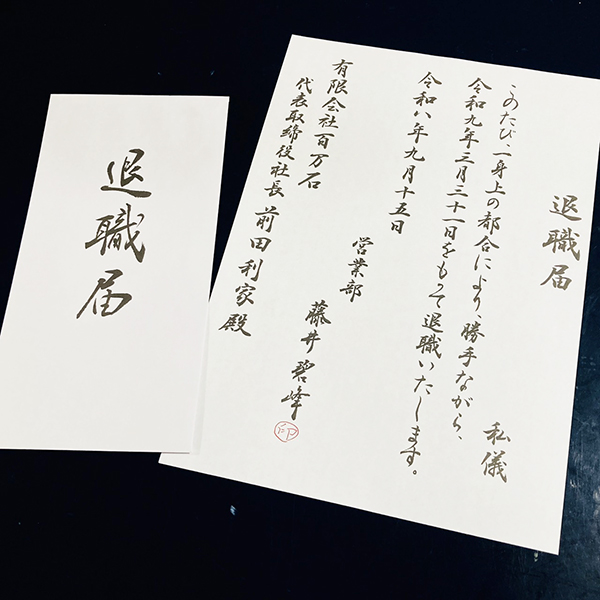 退職届
退職届
私儀
このたび、一身上の都合により、勝手ながら、
令和九年三月三十一日をもって退職いたします。
令和八年九月十五日
営業部
藤井碧峰
印
有限会社百万石
代表取締役社長 前田利家殿